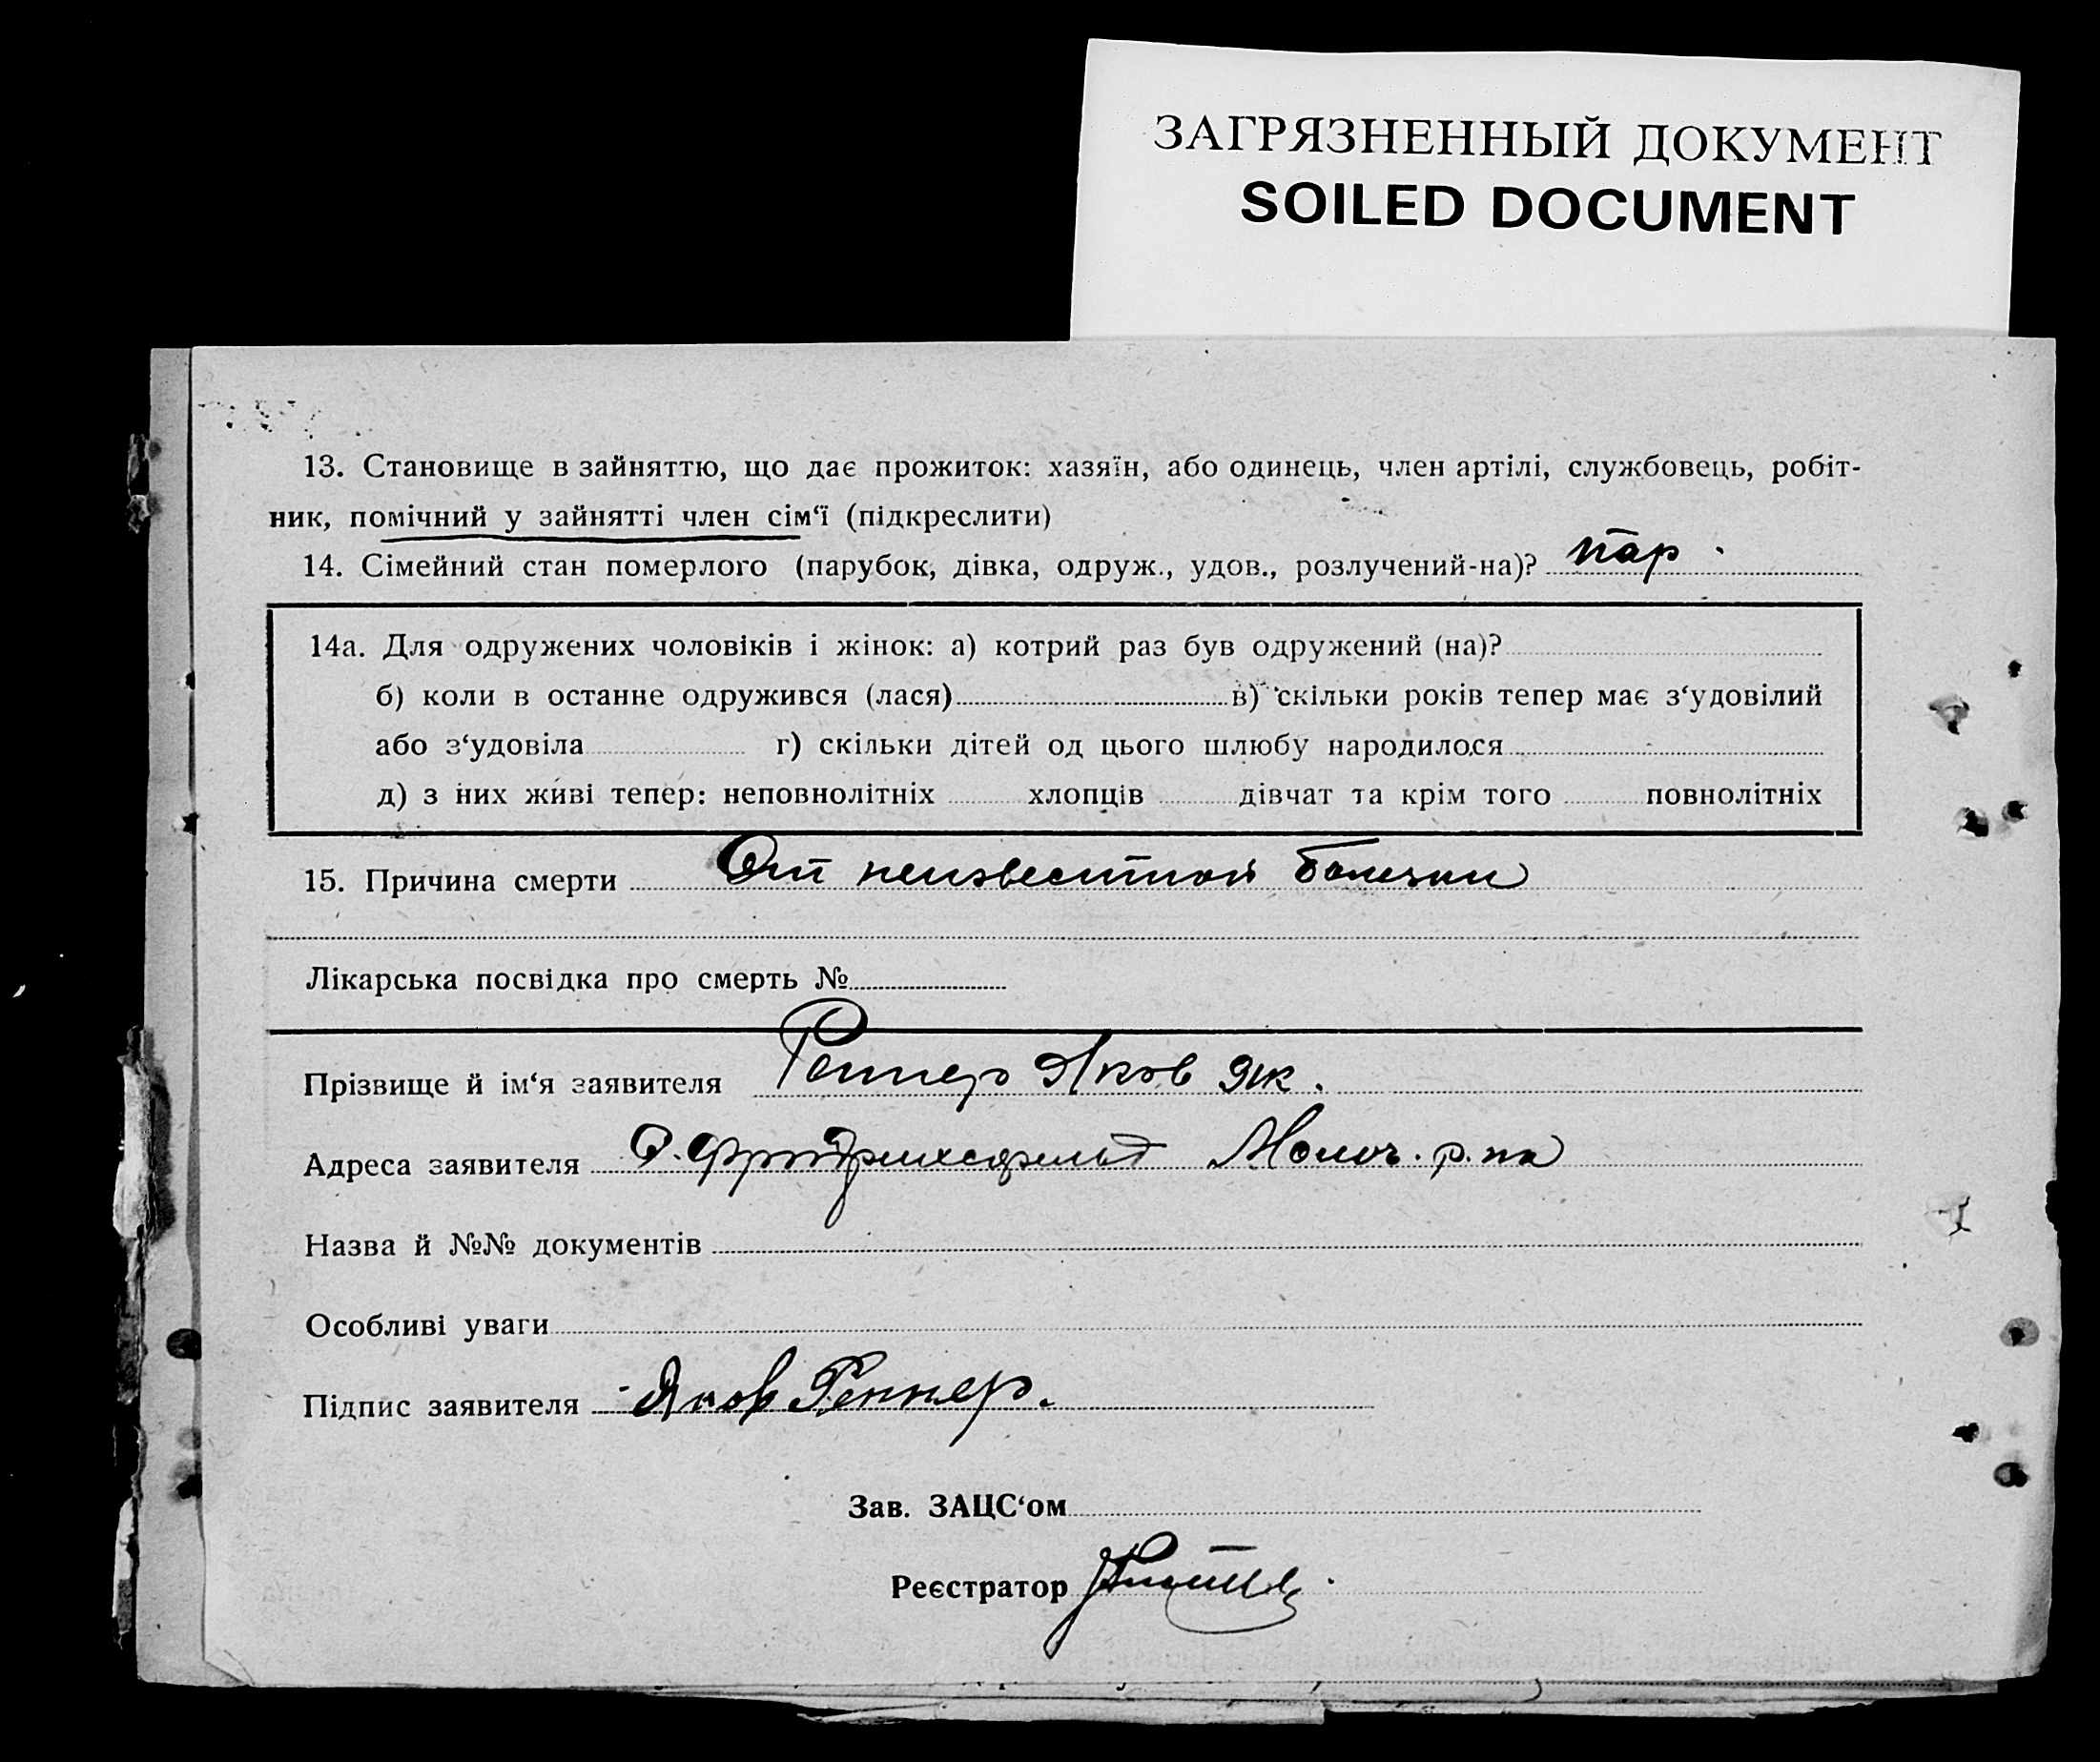 ЗАГРЯЗНЕННЫЙ ДОКУМЕНТ
SOILED DOCUMENT
13. Становище в зайняттю, що дає прожиток: хазяїн, або одинець, член артілі, службовець, робіт-
ник, помічний у зайнятті член сім‘ї (підкреслити)
14. Сімейний стан померлого (парубок, дівка, одруж., удов., розлучений-на)? пар.
14а. Для одружених чоловіків і жінок: а) котрий раз був одружений (на)?
б) коли в останне одружився (лася) в) скільки років тепер має з‘удовілий
або з‘удовіла г) скільки дітей од цього шлюбу народилося
д) з них живі тепер: неповнолітніх хлопців дівчат та крім того повнолітніх
15. Причина смерти От неизвестной болезни
Лікарська посвідка про смерть №
Прізвище й ім‘я заявителя Реннер Яков Як.
Адреса заявителя Молоч. р-на
Назва й №№ документів
Особливі уваги
Підпис заявителя Яков Реннер.
Зав. ЗАЦС‘ом
Реєстратор